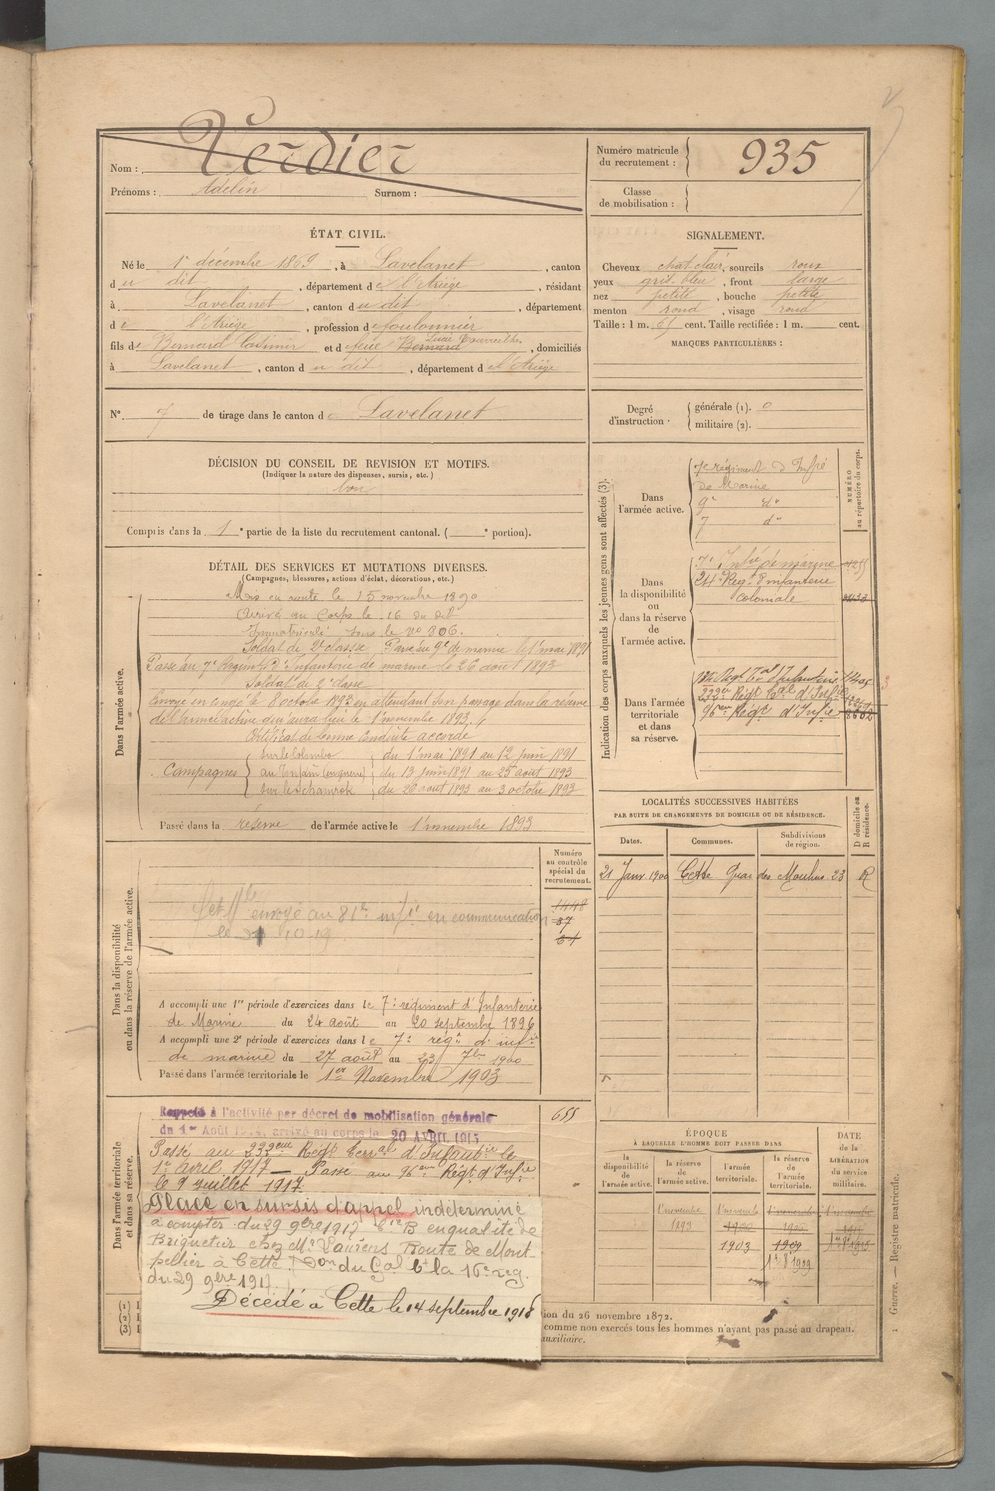 Nom : Verdier
Prénoms : Adelin Surnom :
Numéro matricule du recrutement : 935
Classe de mobilisation :
ÉTAT CIVIL.
Né le 1r décembre 1869, à Lavelanet, canton
du dit, département de l'Ariège, résidant
à Lavelanet, canton du dit, département
de l'Ariège, profession de foulonnier
fils de Bernard Casimir et de feue Bernard Lucie, domiciliés
à Lavelanet, canton du dit, département de l'Ariège
N° 7 de tirage dans le canton de Lavelanet
SIGNALEMENT.
Cheveux chat clair, sourcils roux
yeux gris bleu, front large
nez petite, bouche petite
menton rond, visage rond
Taille : 1 m. 67 cent. Taille rectifiée : 1 m. cent.
MARQUES PARTICULIÈRES :
Degré d'instruction . générale (1). 0
militaire (2).
DÉCISION DU CONSEIL DE REVISION ET MOTIFS.
(Indiquer la nature des dispenses, sursis, etc.)
bon
Compris dans la 1e partie de la liste du recrutement cantonal. ( e portion).
DÉTAIL DES SERVICES ET MUTATIONS DIVERSES.
(Campagnes, blessures, actions d'éclat, décorations, etc.)
Dans l'armée active.
Mis en route le 15 novembre 1890
Arrivé au Corps le 16 du dit
Immatriculé sous le No 806.
Soldat de 2e classe Passé au 9e de marine le 1 mai 1891
Passé au 7e Régiment d'Infanterie de marine le 26 août 1893
Soldat de 2e classe
Envoyé en congé le 8 octobre 1893 en attendant son passage dans la réserve
de l'armée active qui aura lieu le 1 novembre 1893.
Certificat de bonne conduite accordé
Campagnes
sur le Colombo du 1 mai 1891 au 12 juin 1891
au Tonkin (en guerre) du 13 juin 1891 au 25 août 1893
sur le Schamrok du 26 août 1893 au 3 octobre 1893
Passé dans la réserve de l'armée active le 1 novembre 1893
Indication des corps auxquels les jeunes gens sont affectés (3).
NUMÉRO au répertoire du corps.
Dans l'armée active.
7e régiment d'Infie
de Marine
9e do
7 do
Dans la disponibilité ou dans la réserve de l'armée active.
7e Infie de marine
24e Regt d'Infanterie
Coloniale
Dans l'armée territoriale et dans sa réserve.
232em Régt Tal d'Infie
96em Régt d'Infie
LOCALITÉS SUCCESSIVES HABITÉES
PAR SUITE DE CHANGEMENTS DE DOMICILE OU DE RÉSIDENCE.
D domicile ou R résidence.
Dates. Communes. Subdivisions de région.
21 Janv. 1900 Cette Quai des Moulins 23 R
Dans la disponibilité ou dans la réserve de l'armée active.
Numéro au contrôle spécial du recrutement.
1448
37
61
envoyé au 81e infie en communication
le 10 19
A accompli une 1re période d'exercices dans le 7e régiment d'Infanterie
de Marine du 24 août au 20 septembre 1896
A accompli une 2e période d'exercices dans le 7e régt d'infie
de marine du 27 août au 23 7bre 1900
Passé dans l'armée territoriale le 1er Novembre 1903
Dans l'armée territoriale et dans sa réserve.
655
Rappelé à l'activité par décret de mobilisation générale
du 1er Août 1914, arrivé au corps le 20 AVRIL 1915
Passé au 232eme Régt Terral d'Infanterie le
1er avril 1917 — Passé au 96em Régt d'Infie
le 9 juillet 1917
Placé en sursis d'appel indéterminé
à compter du 29 9bre 1917 en qualité de
Briquetier chez Mr Laurens Route de Mont-
pellier à Cette Don du Gal Ct la 16e reg.
du 29 9bre 1917.
Décédé à Cette le 14 septembre 1918
ÉPOQUE
À LAQUELLE L'HOMME DOIT PASSER DANS
la disponibilité de l'armée active. la réserve de l'armée active. l'armée territoriale. la réserve de l'armée territoriale.
DATE de la LIBÉRATION du service militaire.
1 novembre 1893
1 novembre 1900
1903
1 novembre 1906
1909
1r 8 1909
(1)
(2)
(3)
ion du 26 novembre 1872.
comme non exercés tous les hommes n'ayant pas passé au drapeau.
auxiliaire.
Guerre. — Registre matricule.